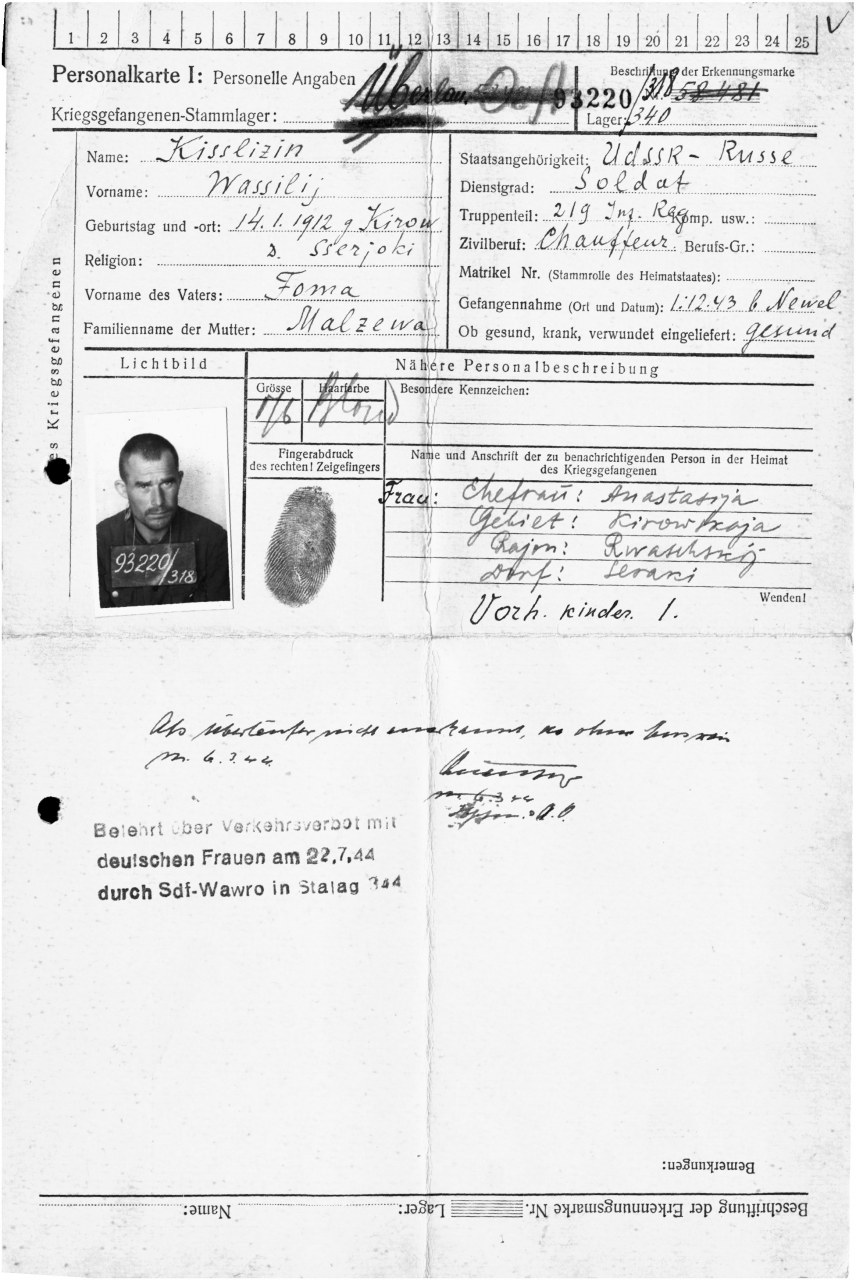 1 2 3 4 5 6 7 8 9 10 11 12 13 14 15 16 17 18 19 20 21 22 23 24 25
Personalkarte I: Personelle Angaben
Beschriftung der Erkennungsmarke
93220/318 58481
Kriegsgefangenen-Stammlager:
Lager: 340
des Kriegsgefangenen
Name: Kisslizin
Vorname: Wassilij
Geburtstag und -ort: 14.1.1912 g Kirow
D. Sserjoki
Religion:
Vorname des Vaters: Foma
Familienname der Mutter: Malzewa
Staatsangehörigkeit: UdSSR - Russe
Dienstgrad: Soldat
Truppenteil: 219 Inf. Reg Komp. usw.:
Zivilberuf: Chauffeur Berufs-Gr.:
Matrikel Nr. (Stammrolle des Heimatstaates):
Gefangennahme (Ort und Datum): 1.12.43 b Newel
Ob gesund, krank, verwundet eingeliefert: gesund
Lichtbild
93220/318
Nähere Personalbeschreibung
Grösse Haarfarbe Besondere Kennzeichen:
Blond
Fingerabdruck
des rechten! Zeigefingers
Name und Anschrift der zu benachrichtigenden Person in der Heimat
des Kriegsgefangenen
Frau: Ehefrau: Anastasija
Gebiet: Kirowskaja
Rajon:
Dorf:
Wenden!
Vorh. kinder. 1.
Als Überläufer nicht anerkannt, da ohne
Belehrt über Verkehrsverbot mit
deutschen Frauen am 22.7.44
durch Sdf-Wawro in Stalag 344
Bemerkungen:
Beschriftung der Erkennungsmarke Nr. Lager: Name: